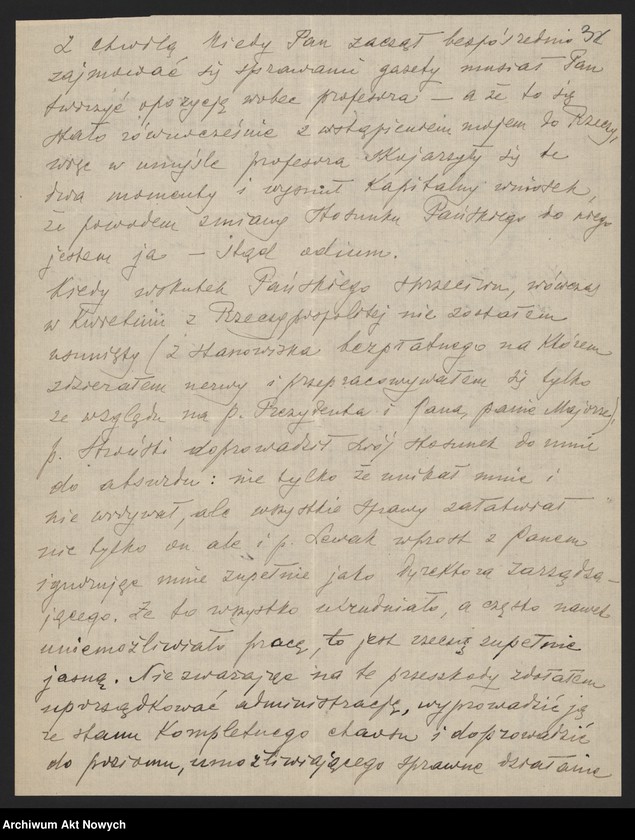 Z chwilą kiedy Pan zaczął bezpośrednio
zajmować się sprawami gazety musiał Pan
tworzyć opozycję wobec profesora – a że to się
stało równocześnie z wstąpieniem mojem do Rzeczy,
więc w umyśle profesora skojarzyły się te
dwa momenty i wysnuł kapitalny wniosek,
że powodem zmiany stosunku Pańskiego do niego
jestem ja – stąd odium.
Kiedy wskutek Pańskiego sprzeciwu, wówczas
w kwietniu z Rzeczypospolitej nie zostałem
usunięty (z stanowiska bezpłatnego na którem
zdzierałem nerwy i przepracowywałem się tylko
ze względu na p. Prezydenta i Pana, panie Majorze),
p. Stroński doprowadził swój stosunek do mnie
do absurdu: nie tylko że unikał mnie i
nie wzywał, ale wszystkie sprawy załatwiał
nie tylko on ale i p. Lewak wprost z Panem
ignorując mnie zupełnie jako dyrektora zarządza-
jącego. Że to wszystko utrudniało, a często nawet
uniemożliwiało pracę, to jest rzeczą zupełnie
jasną. Nie zważając na te przeszkody zdołałem
uporządkować administrację, wyprowadzić ją
ze stanu kompletnego chaosu i doprowadzić
do poziomu, umożliwiającego sprawne działanie
Archiwum Akt Nowych